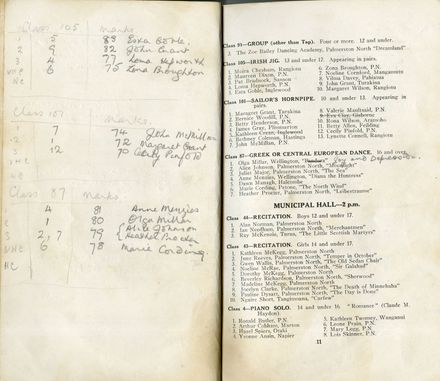 Class 105 marks
1 5 83 Esza Goble
2 9 82 John Grant
3 4 77 Lorna Hepworth
VHC 6 75 Zona Broughton
HC
marks.
1 7 74 John McMillan
72 Margaret Grant
70
HC
Class 87 Marks.
1 4 81 Anne Menzies
2 1 80 Olga Millar
3 2, 7 79 { Alice Johnson
{ Heather Procter
VHC 6 78 Marie Cording
HC
Class 93—GROUP (other than Tap). Four or more. 12 and under.
1. The Zoe Bailey Dancing Academy, Palmerston North "Dreamland"
Class 105—IRISH JIG. 13 and under 17. Appearing in pairs.
1. Moira Chesham, Rangiora
2. Maureen Dixon, P.N.
3. Pat Brudnock, Sanson
4. Lorna Hepworth, P.N.
5. Esza Goble, Inglewood
6. Zona Broughton, P.N.
7. Noeline Cornford, Mangamutu
8. Vilma Davey, Pahiatua
9. John Grant, Turakina
10. Margaret Wilson, Rangiora
Class 101—SAILOR'S HORNPIPE. 10 and under 13. Appearing in pairs.
1. Margaret Grant, Turakina
2. Bernice Woodill, P.N.
3. Betty Henderson, P.N.
4. James Gray, Plimmerton
5. Kathleen Everett, Inglewood
6. Bethney Coleman, Hastings
7. John McMillan, P.N.
8. Valerie Macdonald, P.N.
9. Eva Clay, Gisborne
10. Rona Wilson, Aramoho
11. Betty Allen, Feilding
12. Cecily Pinfold, P.N.
13. Lynette Connell, Rangiora
Class 87—GREEK OR CENTRAL EUROPEAN DANCE. 16 and over.
1. Olga Millar, Wellington, Joy and Depression.
2. Alice Johnson, Palmerston North, "Moonlight"
3. Juliet Major, Palmerston North, "The Sea"
4. Anne Menzies, Wellington, "Diana the Huntress"
5. Dawn Managh, Halcombe
6. Marie Cording, Petone, "The North Wind"
7. Heather Procter, Palmerston North, "Leibestraume"
MUNICIPAL HALL—2 p.m.
Class 44—RECITATION. Boys 12 and under 17.
1. Alan Norman, Palmerston North
2. Ian Needham, Palmerston North, "Merchantmen"
3. Ray McKenzie, Turua, "The Little Scottish Martyrs"
Class 43—RECITATION. Girls 14 and under 17.
1. Kathleen McKegg, Palmerston North
2. June Reeves, Palmerston North, "Temper in October"
3. Gwen Wallis, Palmerston North, "The Old Sedan Chair"
4. Noeline McRae, Palmerston North, "Sir Galahad"
5. Dorothy McKegg, Palmerston North
6. Beverley Richardson, Palmerston North, "Sherwood"
7. Madeline McKegg, Palmerston North
8. Jocelyn Clarke, Palmerston North, "The Death of Minnehaha"
9. Pauline Dysart, Palmerston North, "The Day is Done"
10. Ngaire Short, Tangiteroria, "Curfew"
Class 4—PIANO SOLO. 14 and under 16. "Romance" (Claude M. Haydon)
1. Ronald Butler, P.N.
2. Arthur Cohlune, Marton
3. Hazel Spiers, Otaki
4. Yvonne Ansin, Napier
5. Kathleen Twomey, Wanganui
6. Leone Prain, P.N.
7. Mary Legg, P.N.
8. Lois Skinner, P.N.
11